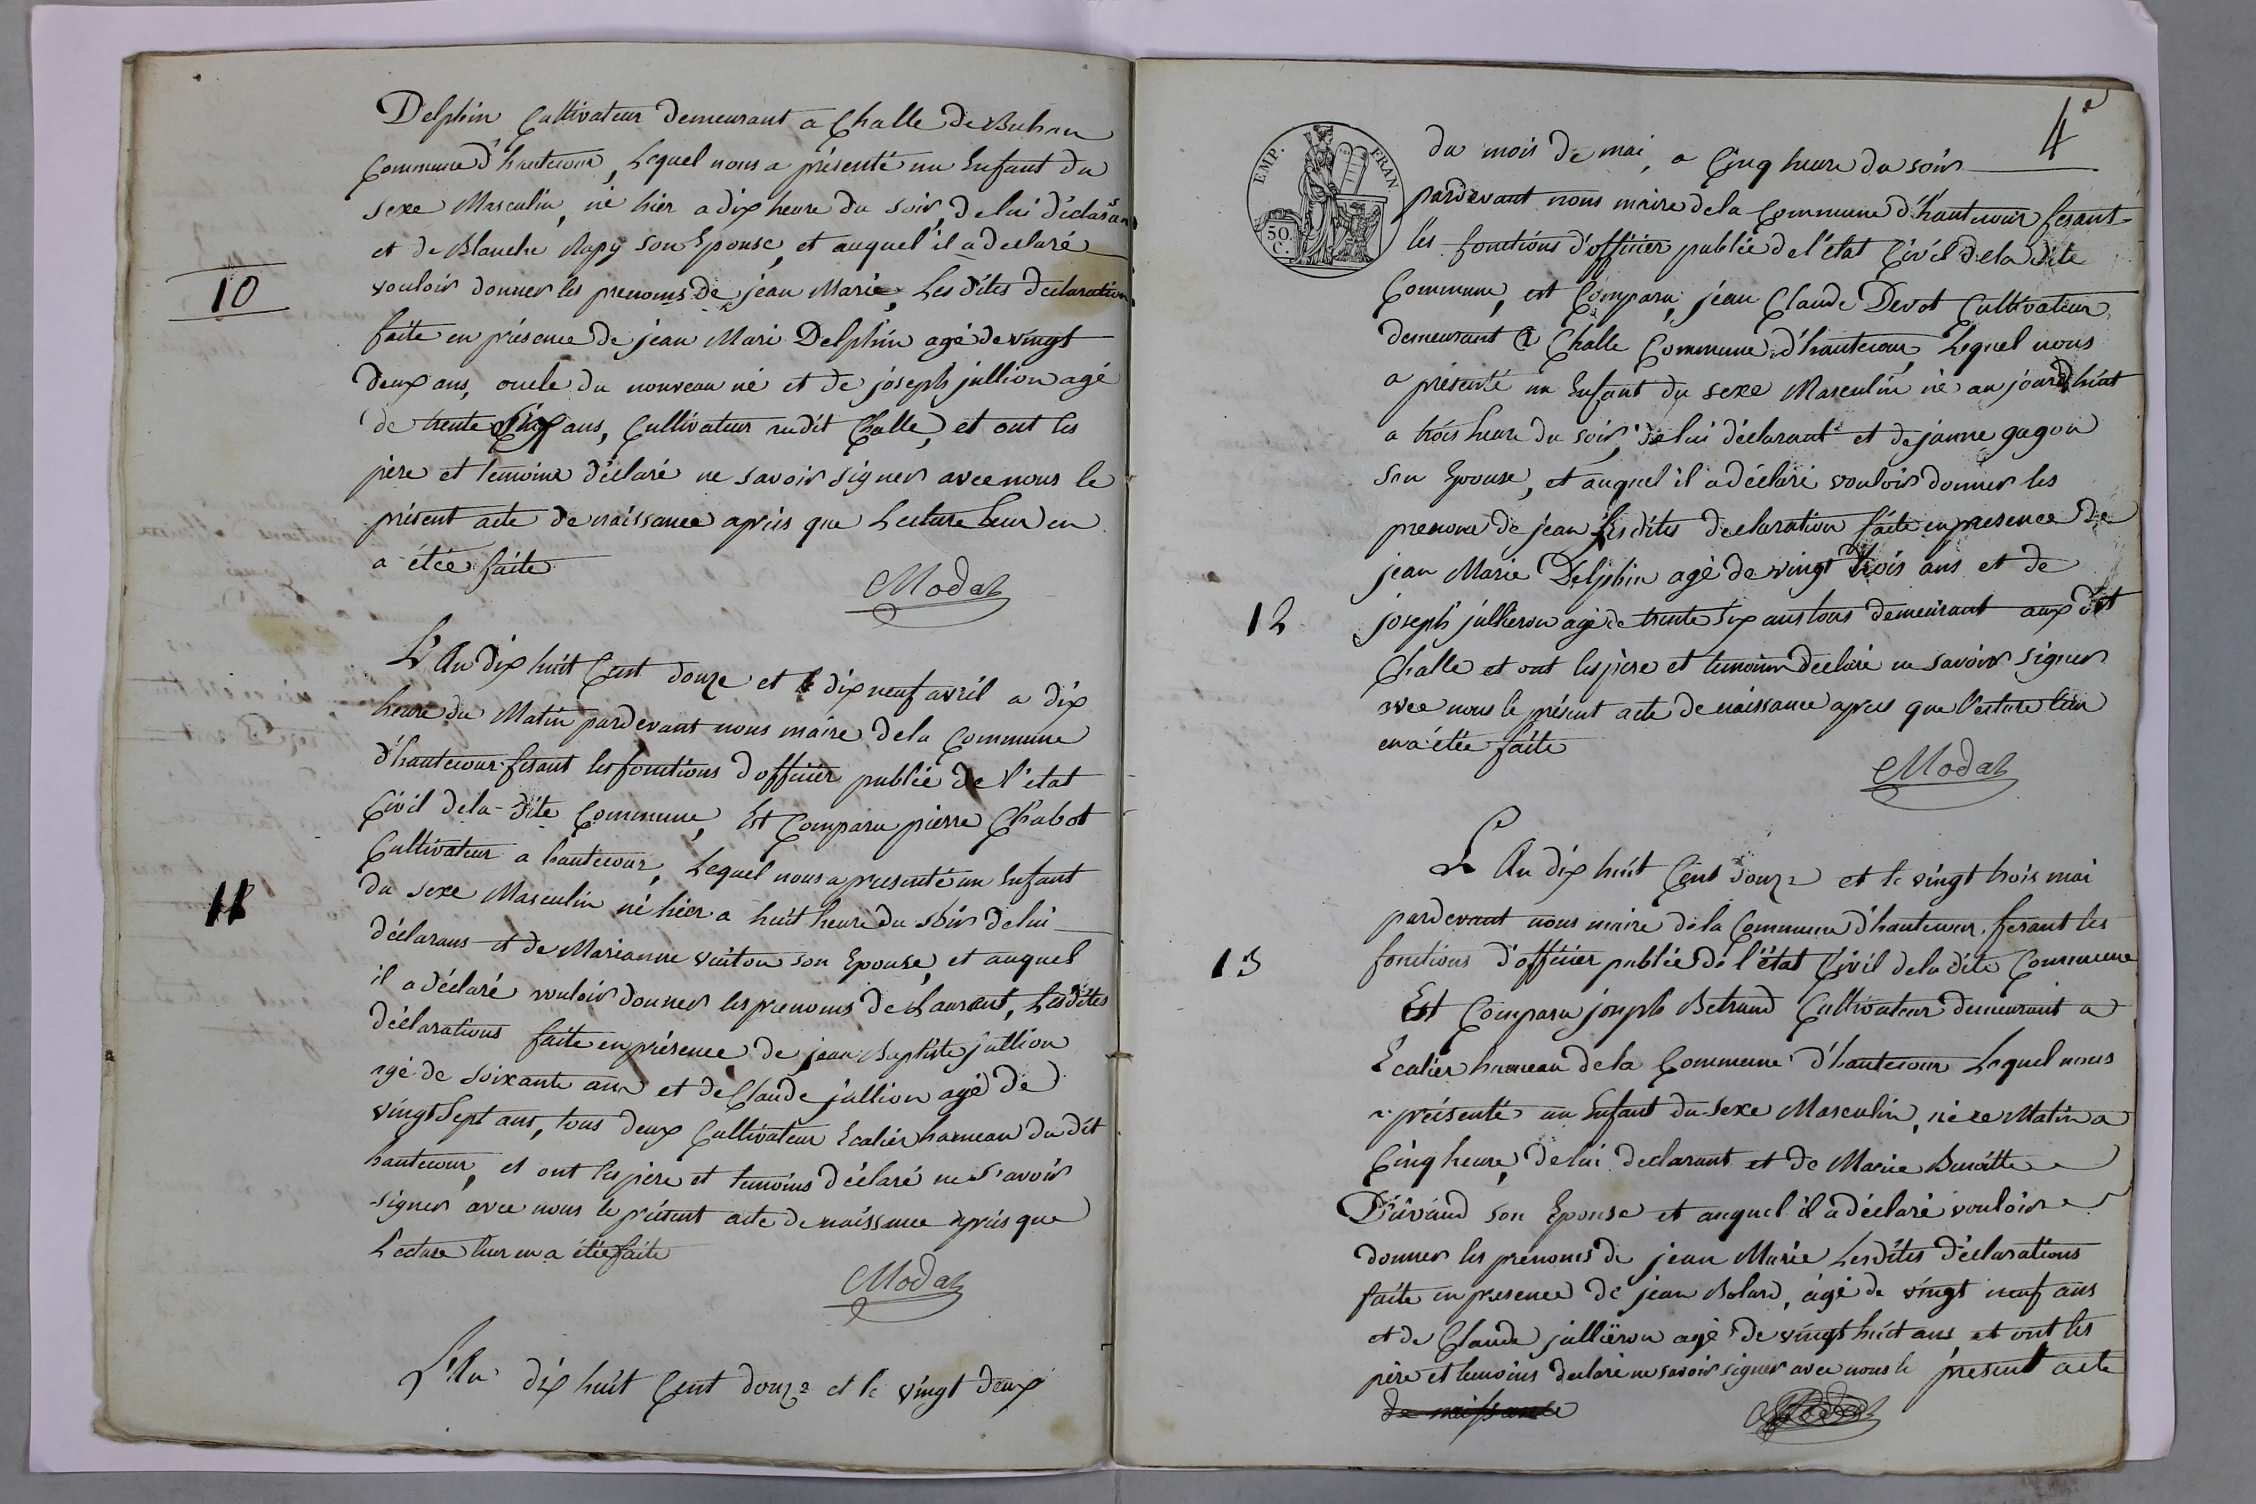 Delphin Cultivateur demeurant a Challe de
Commune d'hautecour, Lequel nous a présenté un Enfant du
sexe Masculin, né hier a dix heure du soir, de lui déclarant
et de Blanche Rapy son Epouse, et auquel il a declaré
10
vouloir donner les prenoms de jean Marie, Les dites declaration
faite en présence de jean Mari Delphin agé de vingt
deux ans, oncle du nouveau né et de joseph jullion agé
de trente ans, Cultivateur audit Challe, et ont les
père et temoins déclaré ne savoir signer avec nous le
présent acte de naissance après que Lecture leur en
a étée faite
Modaz
L'An dix huit Cent douze et le dix neuf avril a dix
heure du Matin pardevant nous maire dela Commune
d'hautecour fesant les fonctions d'officier publie de l'état
Civil dela dite Commune, Est Comparu pierre Chabot
Cultivateur a hautecour, Lequel nous a presenté un Enfant
11
du sexe Masculin né hier a huit heure du soir de lui
déclarans et de Marianne son Epouse, et auquel
il a déclaré vouloir donner les prenoms de Laurant, Lesdites
déclarations faite en présence de jean Baptiste jullion
agé de soixante ans et de Claude jullion agé de
vingt Sept ans, tous deux Cultivateur Ecalier hameau du dit
hautecour, et ont les père et temoins déclaré ne s'avoir
signer avec nous le présent acte de naissance après que
Lecture leur en a étée faite
Modaz
L'An dix huit Cent douze et le vingt deux
4e
EMP. FRAN.
50 C.
du mois de mai, a Cinq heure du soir
pardevant nous maire dela Commune d'hautecour fesant
les fonctions d'officier publie de l'état Civil dela dite
Commune, est Comparu, jean Claude Devot Cultivateur
demeurant a Challe Commune d'hautecour, Lequel nous
a présenté un Enfant du sexe Masculin né au jourd'huit
a trois heure du soir, de lui déclarant et de janne gagon
son Epouse, et auquel il a déclaré vouloir donner les
prenoms de jean Lesdites declaration faite en presence de
jean Marie Delphin agé de vingt trois ans et de
12
joseph jullieron agé de trente six ans tous demeurant aux dit
Challe et ont les père et temoins declaré ne savoir signer
avec nous le présent acte de naissance apres que lecture leur
en a étée faite
Modaz
L'An dix huit Cent douze et le vingt trois mai
pardevant nous maire dela Commune d'hautecour fesant les
13
fonctions d'officier publie de l'état Civil dela dite Commune
Est Comparu joseph Betrand Cultivateur demeurant a
Ecalier hameau dela Commune d'hautecour Lequel nous
a présenté un Enfant du sexe Masculin, né ce Matin a
Cinq heure, de lui declarant et de Marie Benoitte
Durand son Epouse et auquel il a déclaré vouloir
donner les prénoms de jean Marie Lesdites déclarations
faite en presence de jean Bolard, agé de vingt neuf ans
et de Claude julliëron agé de vingt huit ans et ont les
père et temoins declaré ne savoir signer avec nous le présent acte
de naissance